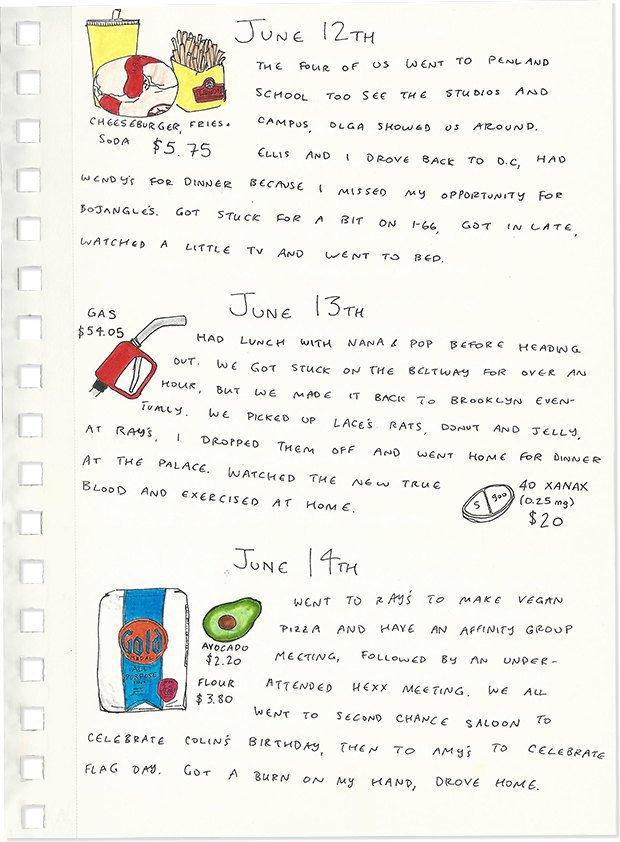 JUNE 12TH
THE FOUR OF US WENT TO PENLAND
SCHOOL TOO SEE THE STUDIOS AND
CAMPUS, OLGA SHOWED US AROUND.
CHEESEBURGER, FRIES +
SODA $5.75
ELLIS AND I DROVE BACK TO D.C, HAD
WENDY'S FOR DINNER BECAUSE I MISSED MY OPPORTUNITY FOR
BOJANGLE'S. GOT STUCK FOR A BIT ON I-66, GOT IN LATE,
WATCHED A LITTLE TV AND WENT TO BED.
JUNE 13TH
GAS
$54.05
HAD LUNCH WITH NANA & POP BEFORE HEADING
OUT. WE GOT STUCK ON THE BELTWAY FOR OVER AN
HOUR, BUT WE MADE IT BACK TO BROOKLYN EVEN-
TUALLY. WE PICKED UP LACE'S RATS, DONUT AND JELLY,
AT RAY'S, I DROPPED THEM OFF AND WENT HOME FOR DINNER
AT THE PALACE. WATCHED THE NEW TRUE
BLOOD AND EXERCISED AT HOME.
S 900
40 XANAX
(0.25 mg)
$20
JUNE 14TH
Gold
MEDAL
ALL
PURPOSE
AVOCADO
$2.20
FLOUR
$3.80
WENT TO RAY'S TO MAKE VEGAN
PIZZA AND HAVE AN AFFINITY GROUP
MEETING, FOLLOWED BY AN UNDER-
ATTENDED HEXX MEETING. WE ALL
WENT TO SECOND CHANCE SALOON TO
CELEBRATE COLIN'S BIRTHDAY, THEN TO AMY'S TO CELEBRATE
FLAG DAY. GOT A BURN ON MY HAND, DROVE HOME.